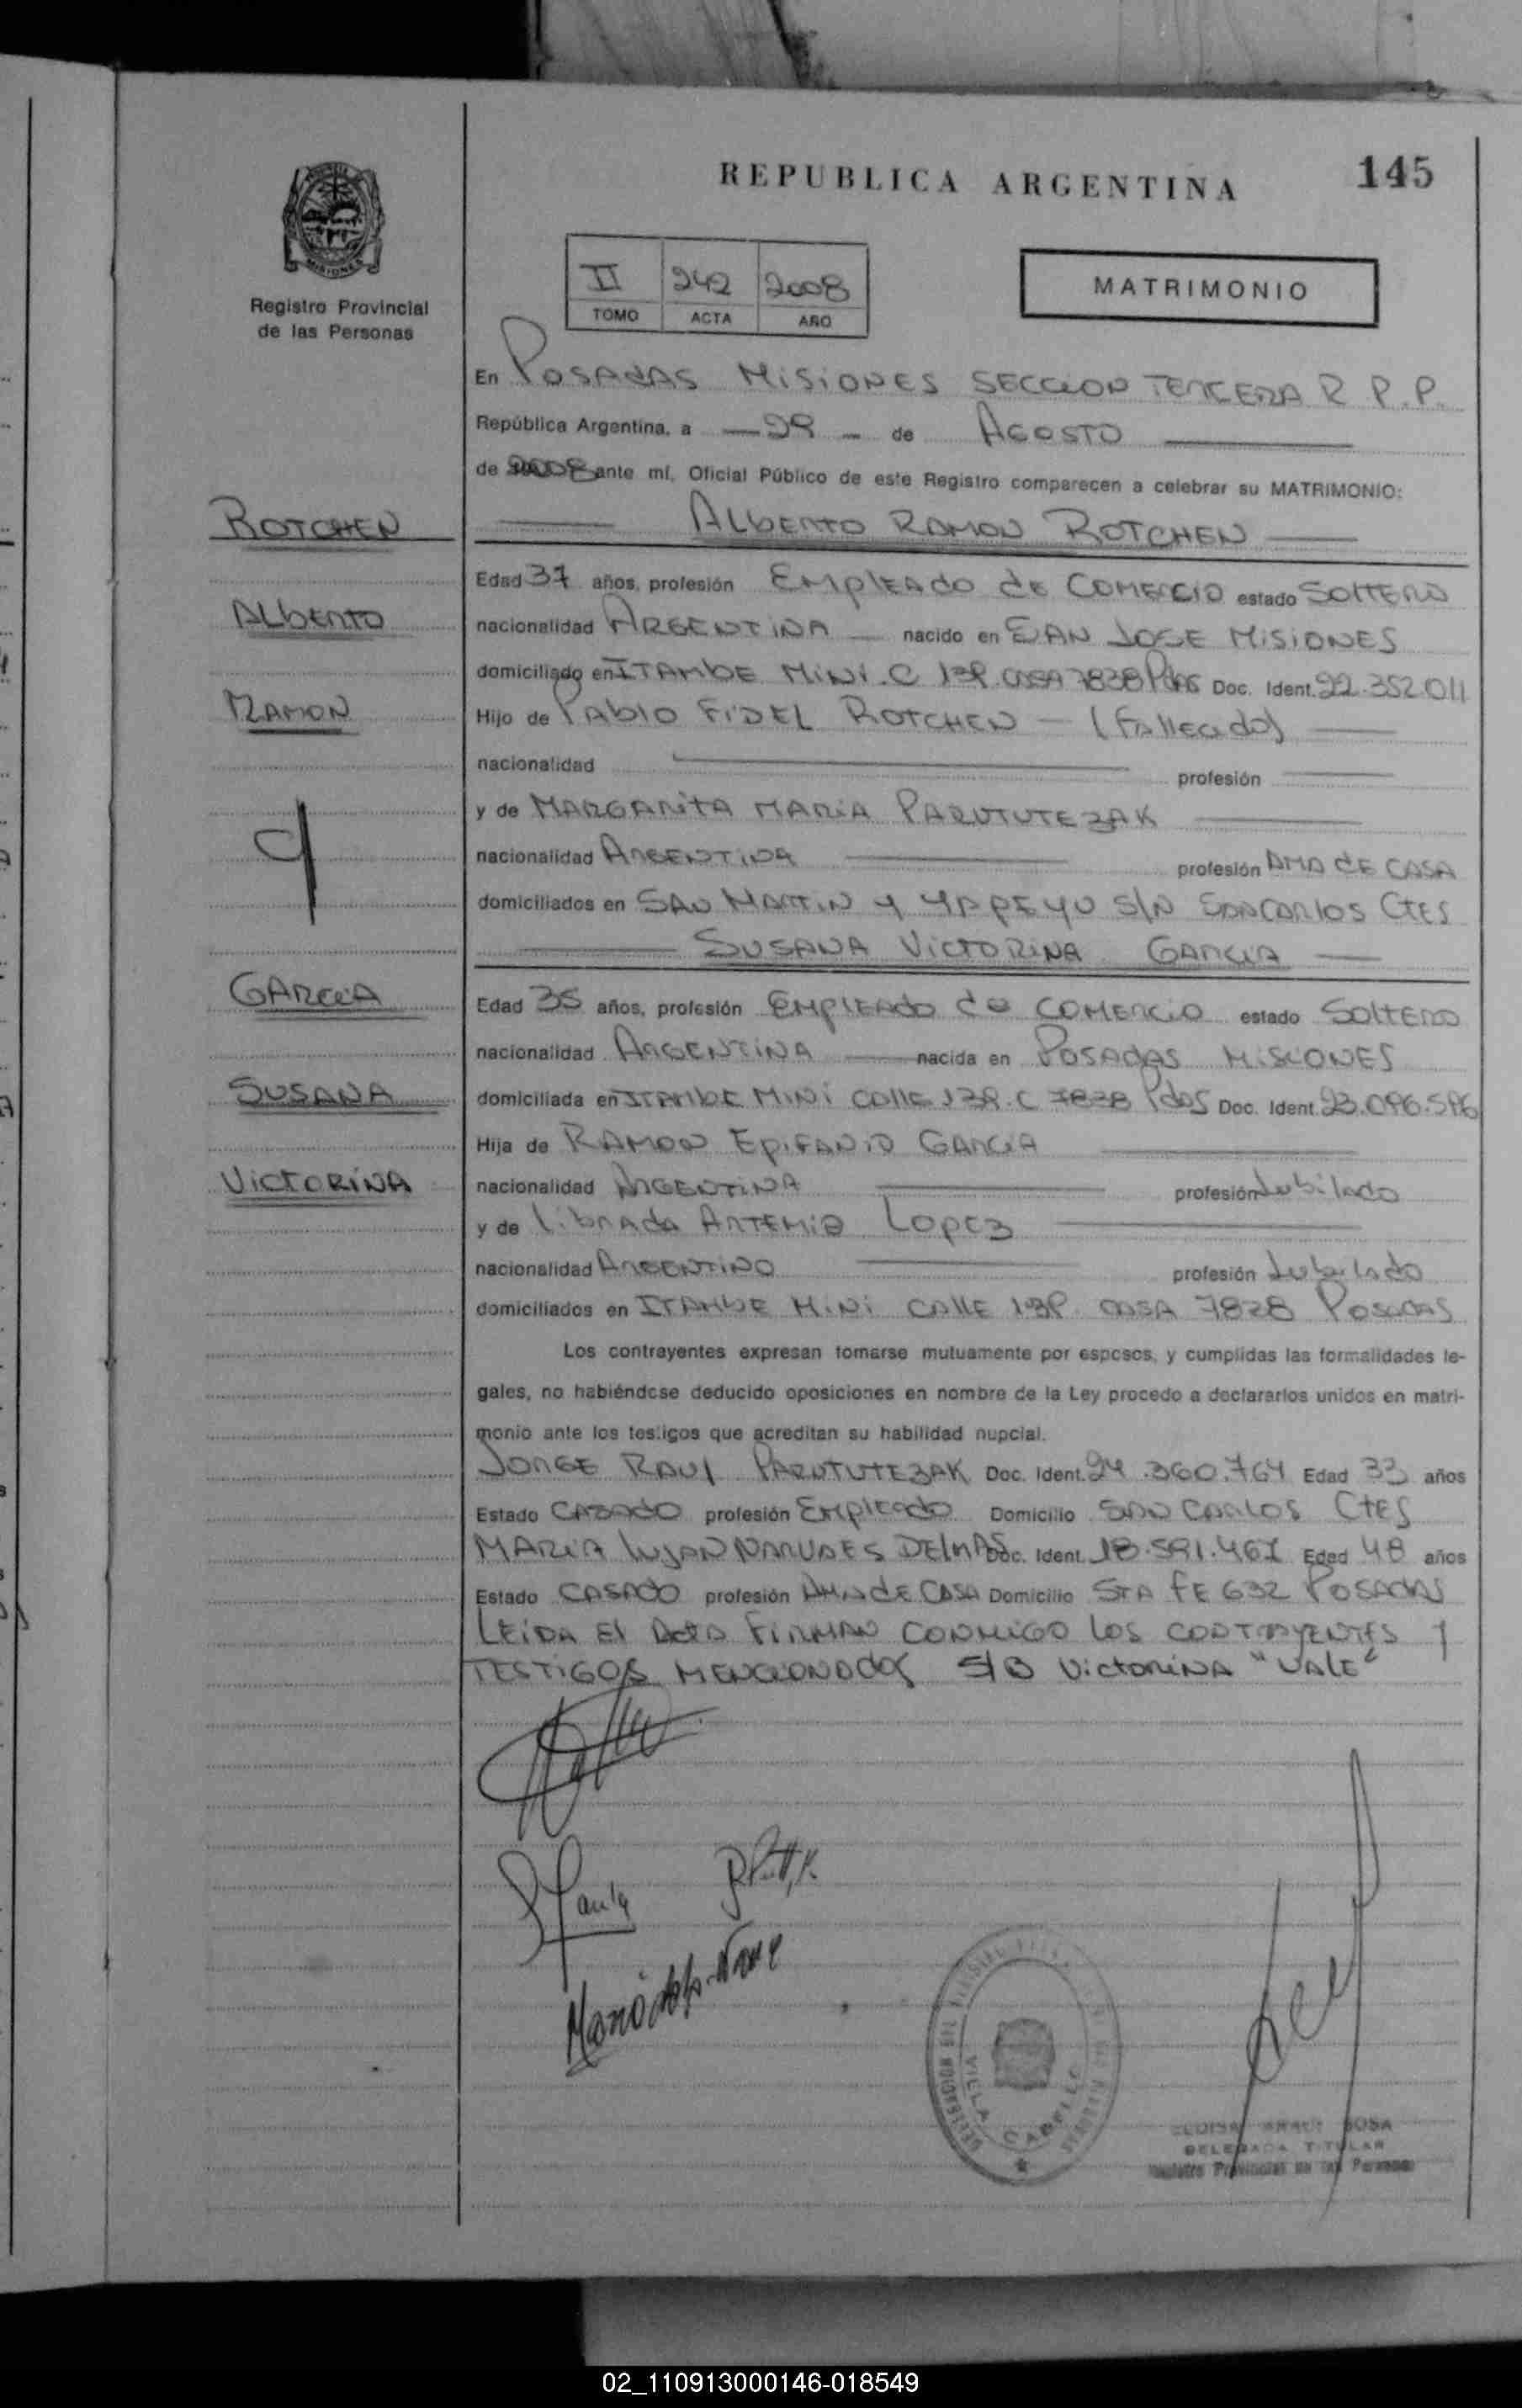 REPUBLICA ARGENTINA
145
MISIONES
Registro Provincial
de las Personas
II 242 2008
TOMO ACTA AÑO
MATRIMONIO
En POSADAS MISIONES SECCION TERCERA R P.P.
República Argentina, a — 29 — de AGOSTO
de 2008 ante mí, Oficial Público de este Registro comparecen a celebrar su MATRIMONIO:
ROTCHEN
ALBERTO RAMON ROTCHEN
Edad 37 años, profesión EMPLEADO de COMERCIO estado SOLTERO
ALBERTO
nacionalidad ARGENTINA nacido en SAN JOSE MISIONES
domiciliado en ITAMBE MINI C 138 CASA 7838 Pdas Doc. Ident. 22.352.011
RAMON
Hijo de PABLO FIDEL ROTCHEN — (Fallecido)
nacionalidad profesión
y de MARGARITA MARIA PARUTUTEZAK
nacionalidad ARGENTINA profesión AMA de CASA
domiciliados en SAN MARTIN y YAPEYU S/N SAN CARLOS CTES
SUSANA VICTORINA GARCIA
GARCIA
Edad 35 años, profesión EMPLEADO de COMERCIO estado SOLTERO
nacionalidad ARGENTINA nacida en POSADAS MISIONES
SUSANA
domiciliada en ITAMBE MINI CALLE 138 C 7838 Pdas Doc. Ident. 23.096.596
Hija de RAMON EPIFANIO GARCIA
VICTORINA
nacionalidad ARGENTINA profesión Jubilado
y de Librada ARTEMIA LOPEZ
nacionalidad ARGENTINO profesión Jubilado
domiciliados en ITAMBE MINI CALLE 138 CASA 7828 POSADAS
Los contrayentes expresan tomarse mutuamente por esposos, y cumplidas las formalidades le-
gales, no habiéndose deducido oposiciones en nombre de la Ley procedo a declararlos unidos en matri-
monio ante los testigos que acreditan su habilidad nupcial.
JORGE RAUL PARUTUTEZAK Doc. Ident. 24.360.764 Edad 33 años
Estado CASADO profesión EMPLEADO Domicilio SAN CARLOS CTES
MARIA LUJAN NARVAES DELMAS Doc. Ident. 18.591.461 Edad 48 años
Estado CASADO profesión AMA de CASA Domicilio STA FE 632 POSADAS
LEIDA El Acta FIRMAN CONMIGO LOS CONTRAYENTES y
TESTIGOS MENCIONADOS S/B VICTORINA "VALE"
VILLA CABELLO
ELOISA SOSA
DELEGADA TITULAR
Registro Provincial de las Personas
02_110913000146-018549